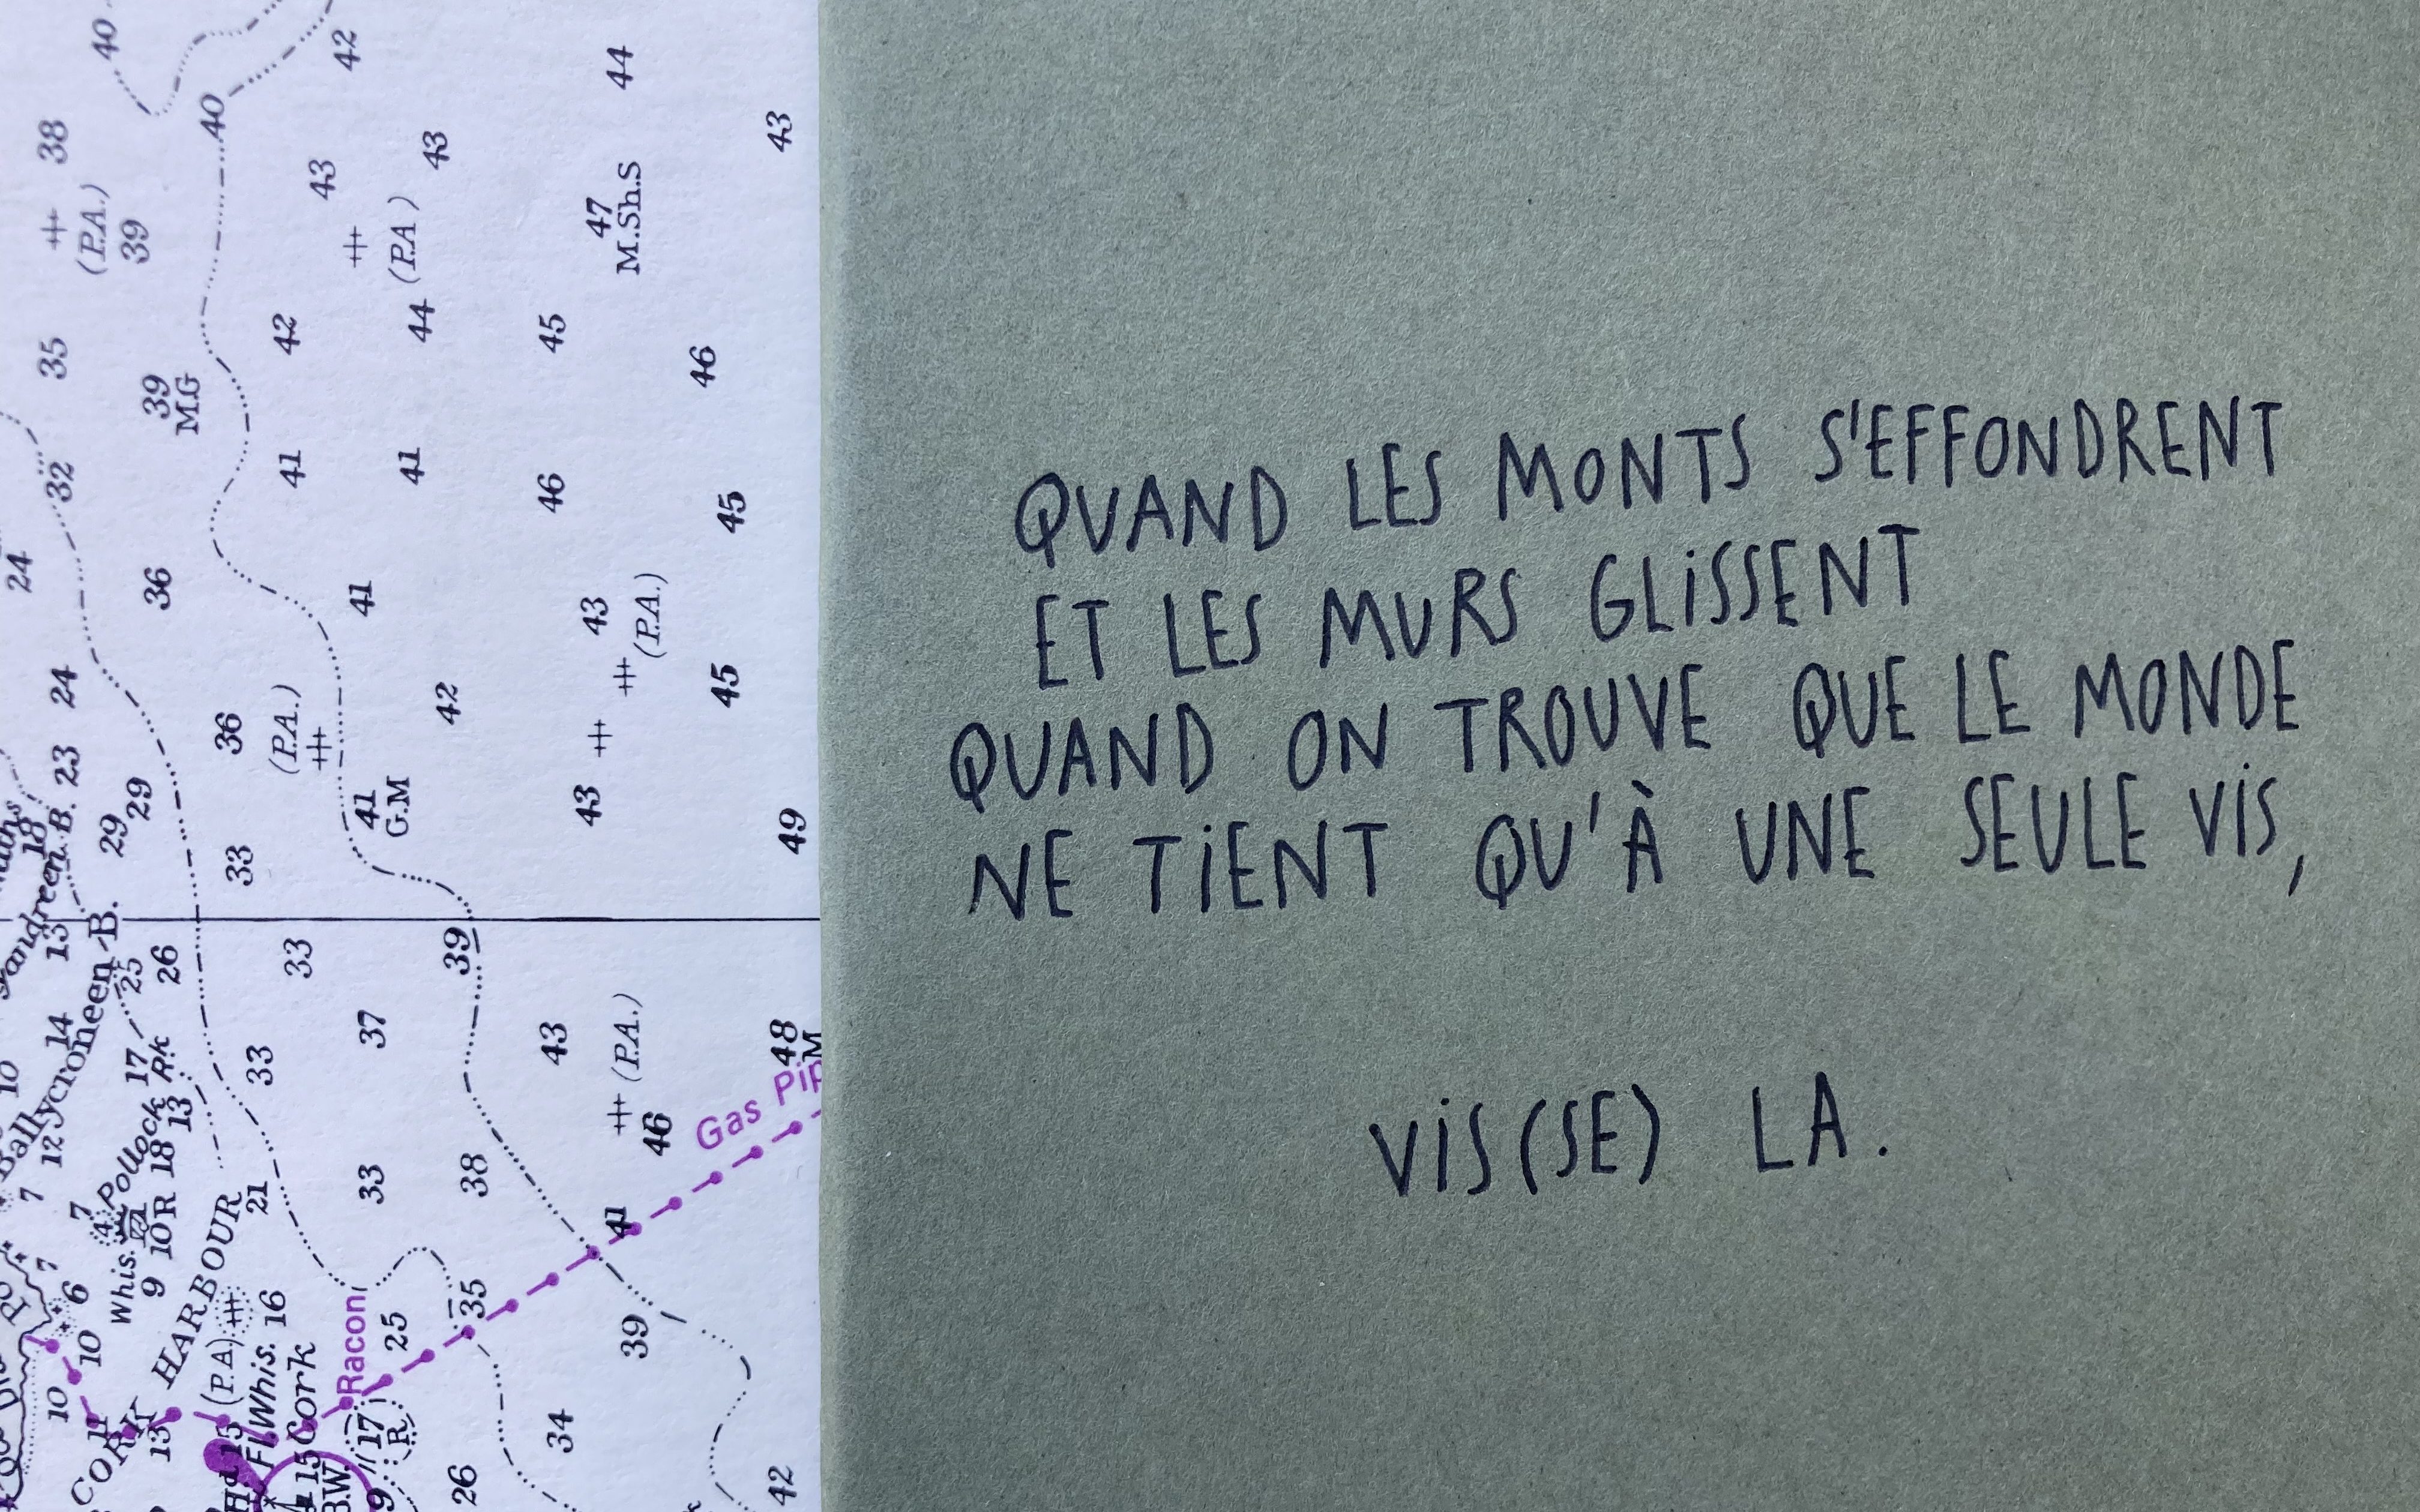 QUAND LES MONTS S'EFFONDRENT
ET LES MURS GLISSENT
QUAND ON TROUVE QUE LE MONDE
NE TIENT QU'À UNE SEULE VIS,
VIS(SE) LA.
40
42
44
43
38
40
43
43
(P.A.)
39
(P.A.)
47
M.Sh.S
35
42
44
45
46
39
M.G
32
41
41
46
45
24
36
41
43
(P.A.)
24
36
(P.A.)
42
45
23
29
29
33
41
G.M
43
49
18
B.
13
Ballycroneen B.
25
26
33
39
14
17
Pollock Rk
33
37
43
(P.A.)
48
M
10
12
13
18
46
Gas
7
7
10R
21
33
38
41
Whis.
9
7
6
CORK HARBOUR
(P.A.)
16
Racon
25
35
39
10
10
13
Fl Whis.
Cork
15
B.W.
17
(R)
9
26
34
42